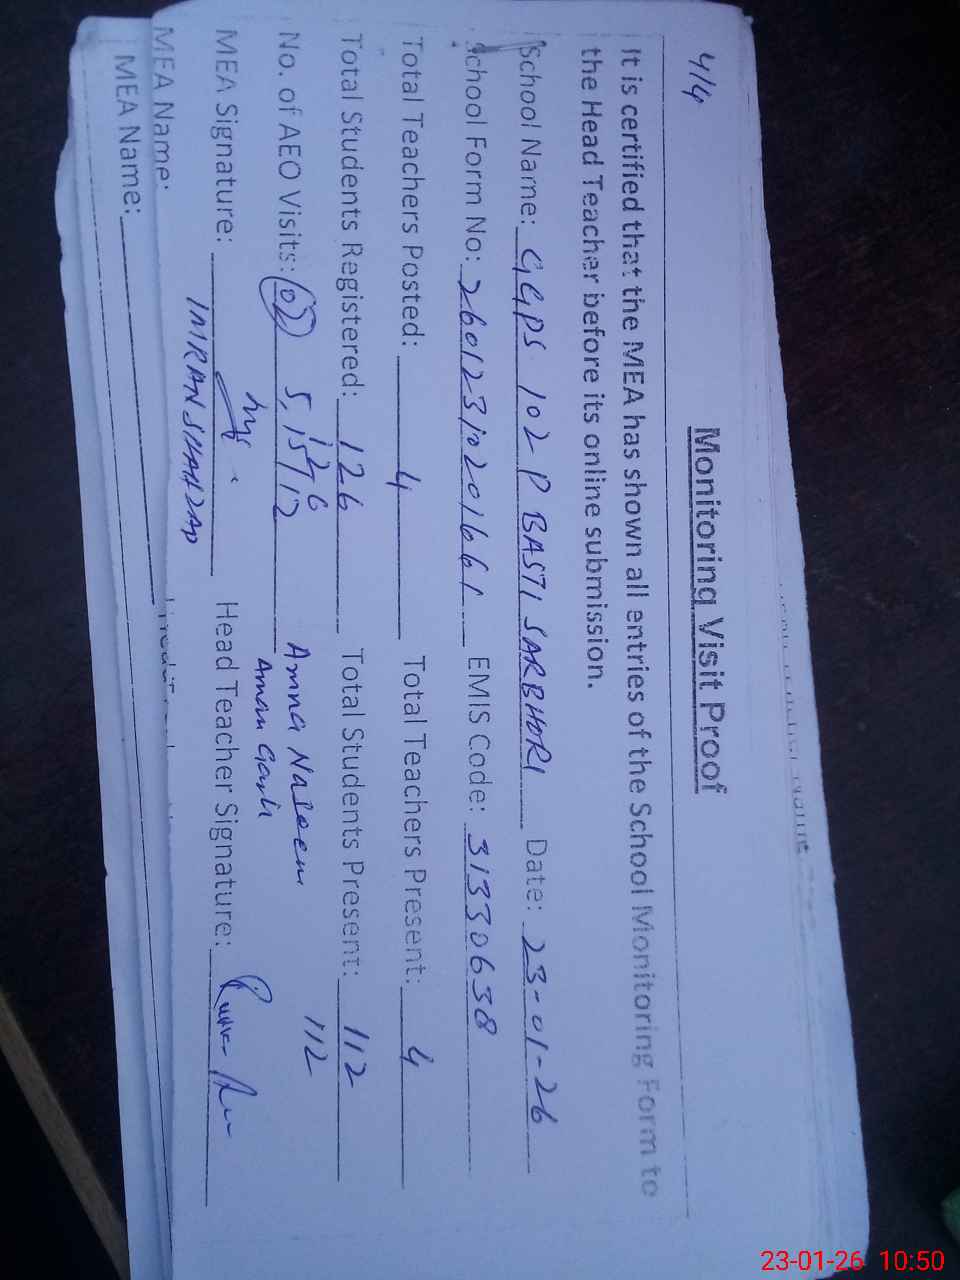 4/4
Monitoring Visit Proof
It is certified that the MEA has shown all entries of the School Monitoring Form to
the Head Teacher before its online submission.
School Name: GGPS 102 P BASTI SARBHORI Date: 23-01-26
School Form No: 26012310201661 EMIS Code: 31330638
Total Teachers Posted: 4 Total Teachers Present: 4
Total Students Registered: 126 Total Students Present: 112
112
No. of AEO Visits: 02 5, 15/12 Amna Naseem
Aman
MEA Signature: Head Teacher Signature:
IMRAN SHAHZAD
MEA Name:
MEA Name:
23-01-26 10:50